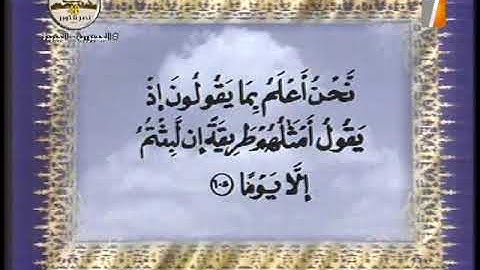 نَّحْنُ أَعْلَمُ بِمَا يَقُولُونَ إِذْ
يَقُولُ أَمْثَلُهُمْ طَرِيقَةً إِن لَّبِثْتُمْ
إِلَّا يَوْمًا ١٠٤